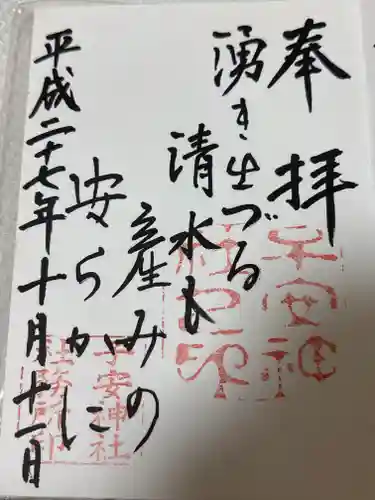 奉拝
湧き出づる
清水も
産みの
安らかに
平成二十七年十月十一日
子安神社
社務所印